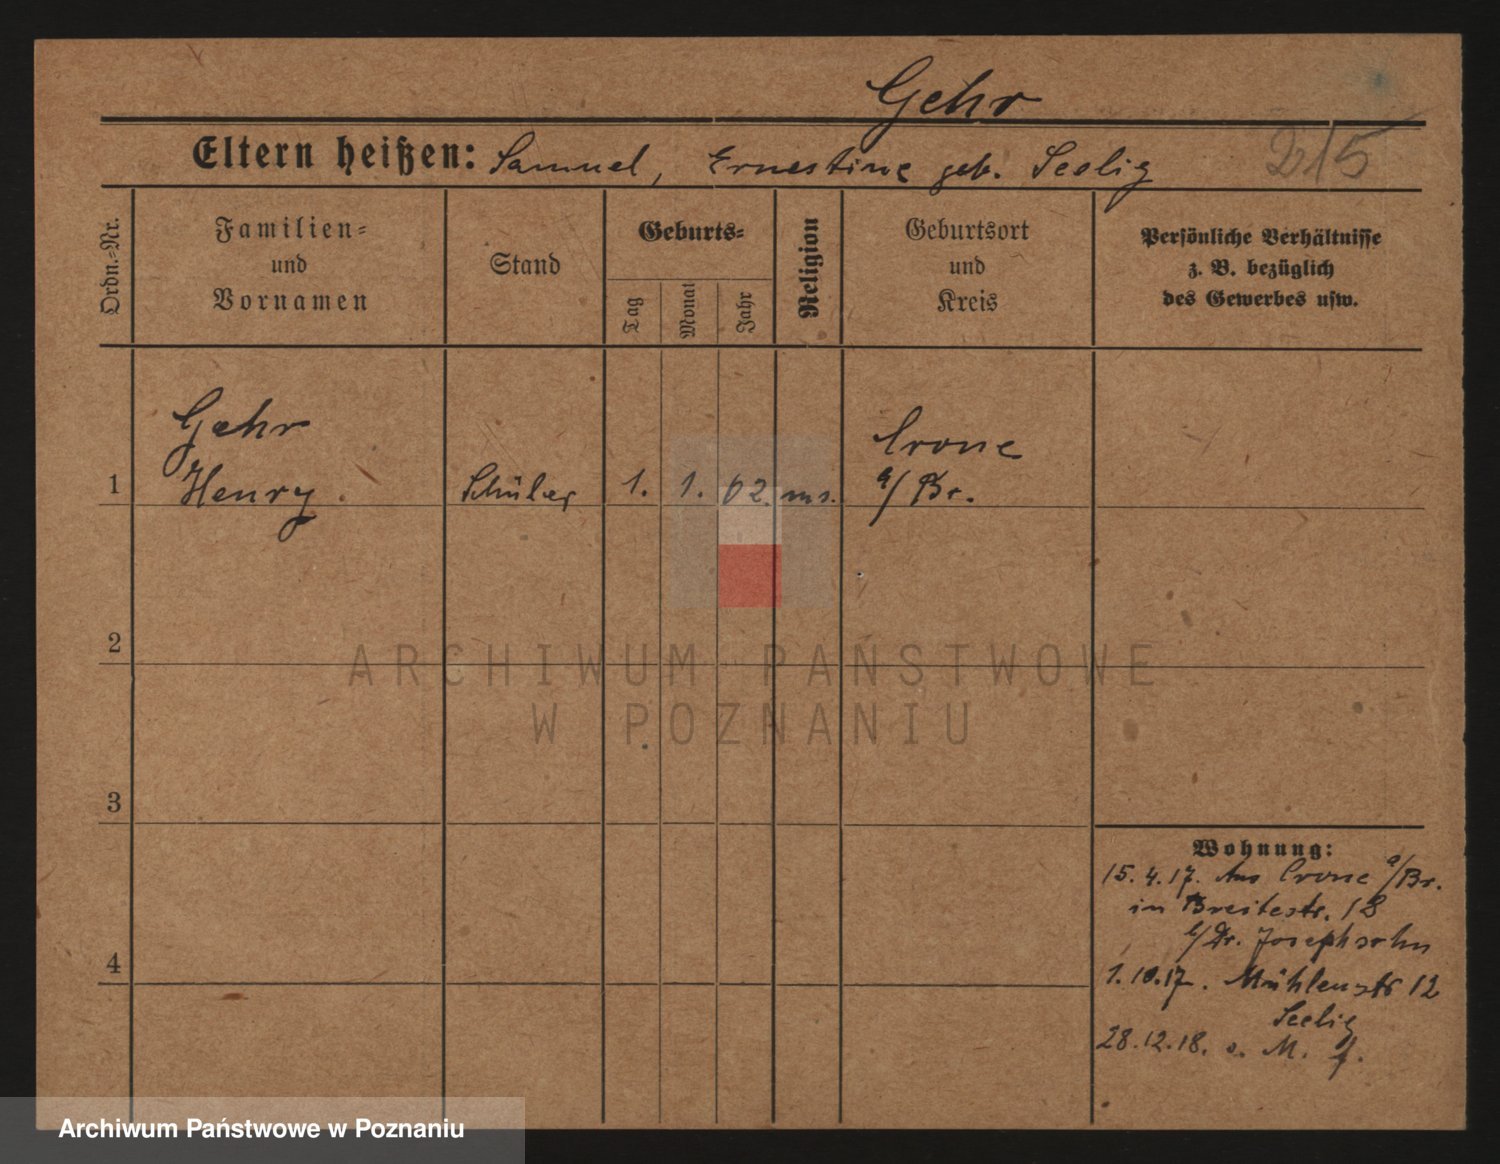 Gehr
Eltern heißen: Samuel, Ernestine geb. Seelig
215
Ordn.-Nr.
Familien-
und
Vornamen
Stand
Geburts-
Tag
Monat
Jahr
Religion
Geburtsort
und
Kreis
Persönliche Verhältnisse
z. B. bezüglich
des Gewerbes usw.
Gehr
Crone
1 Henry. Schüler 1. 1. 02. ms. a/Br.
2
ARCHIWUM PAŃSTWOWE
W POZNANIU
3
Wohnung:
15.4.17. Aus Crone a/Br.
in Breitestr. 18
b/Dr. Josephsohn
4
1.10.17. Mühlenstr 12
Seelig
28.12.18. M.
Archiwum Państwowe w Poznaniu